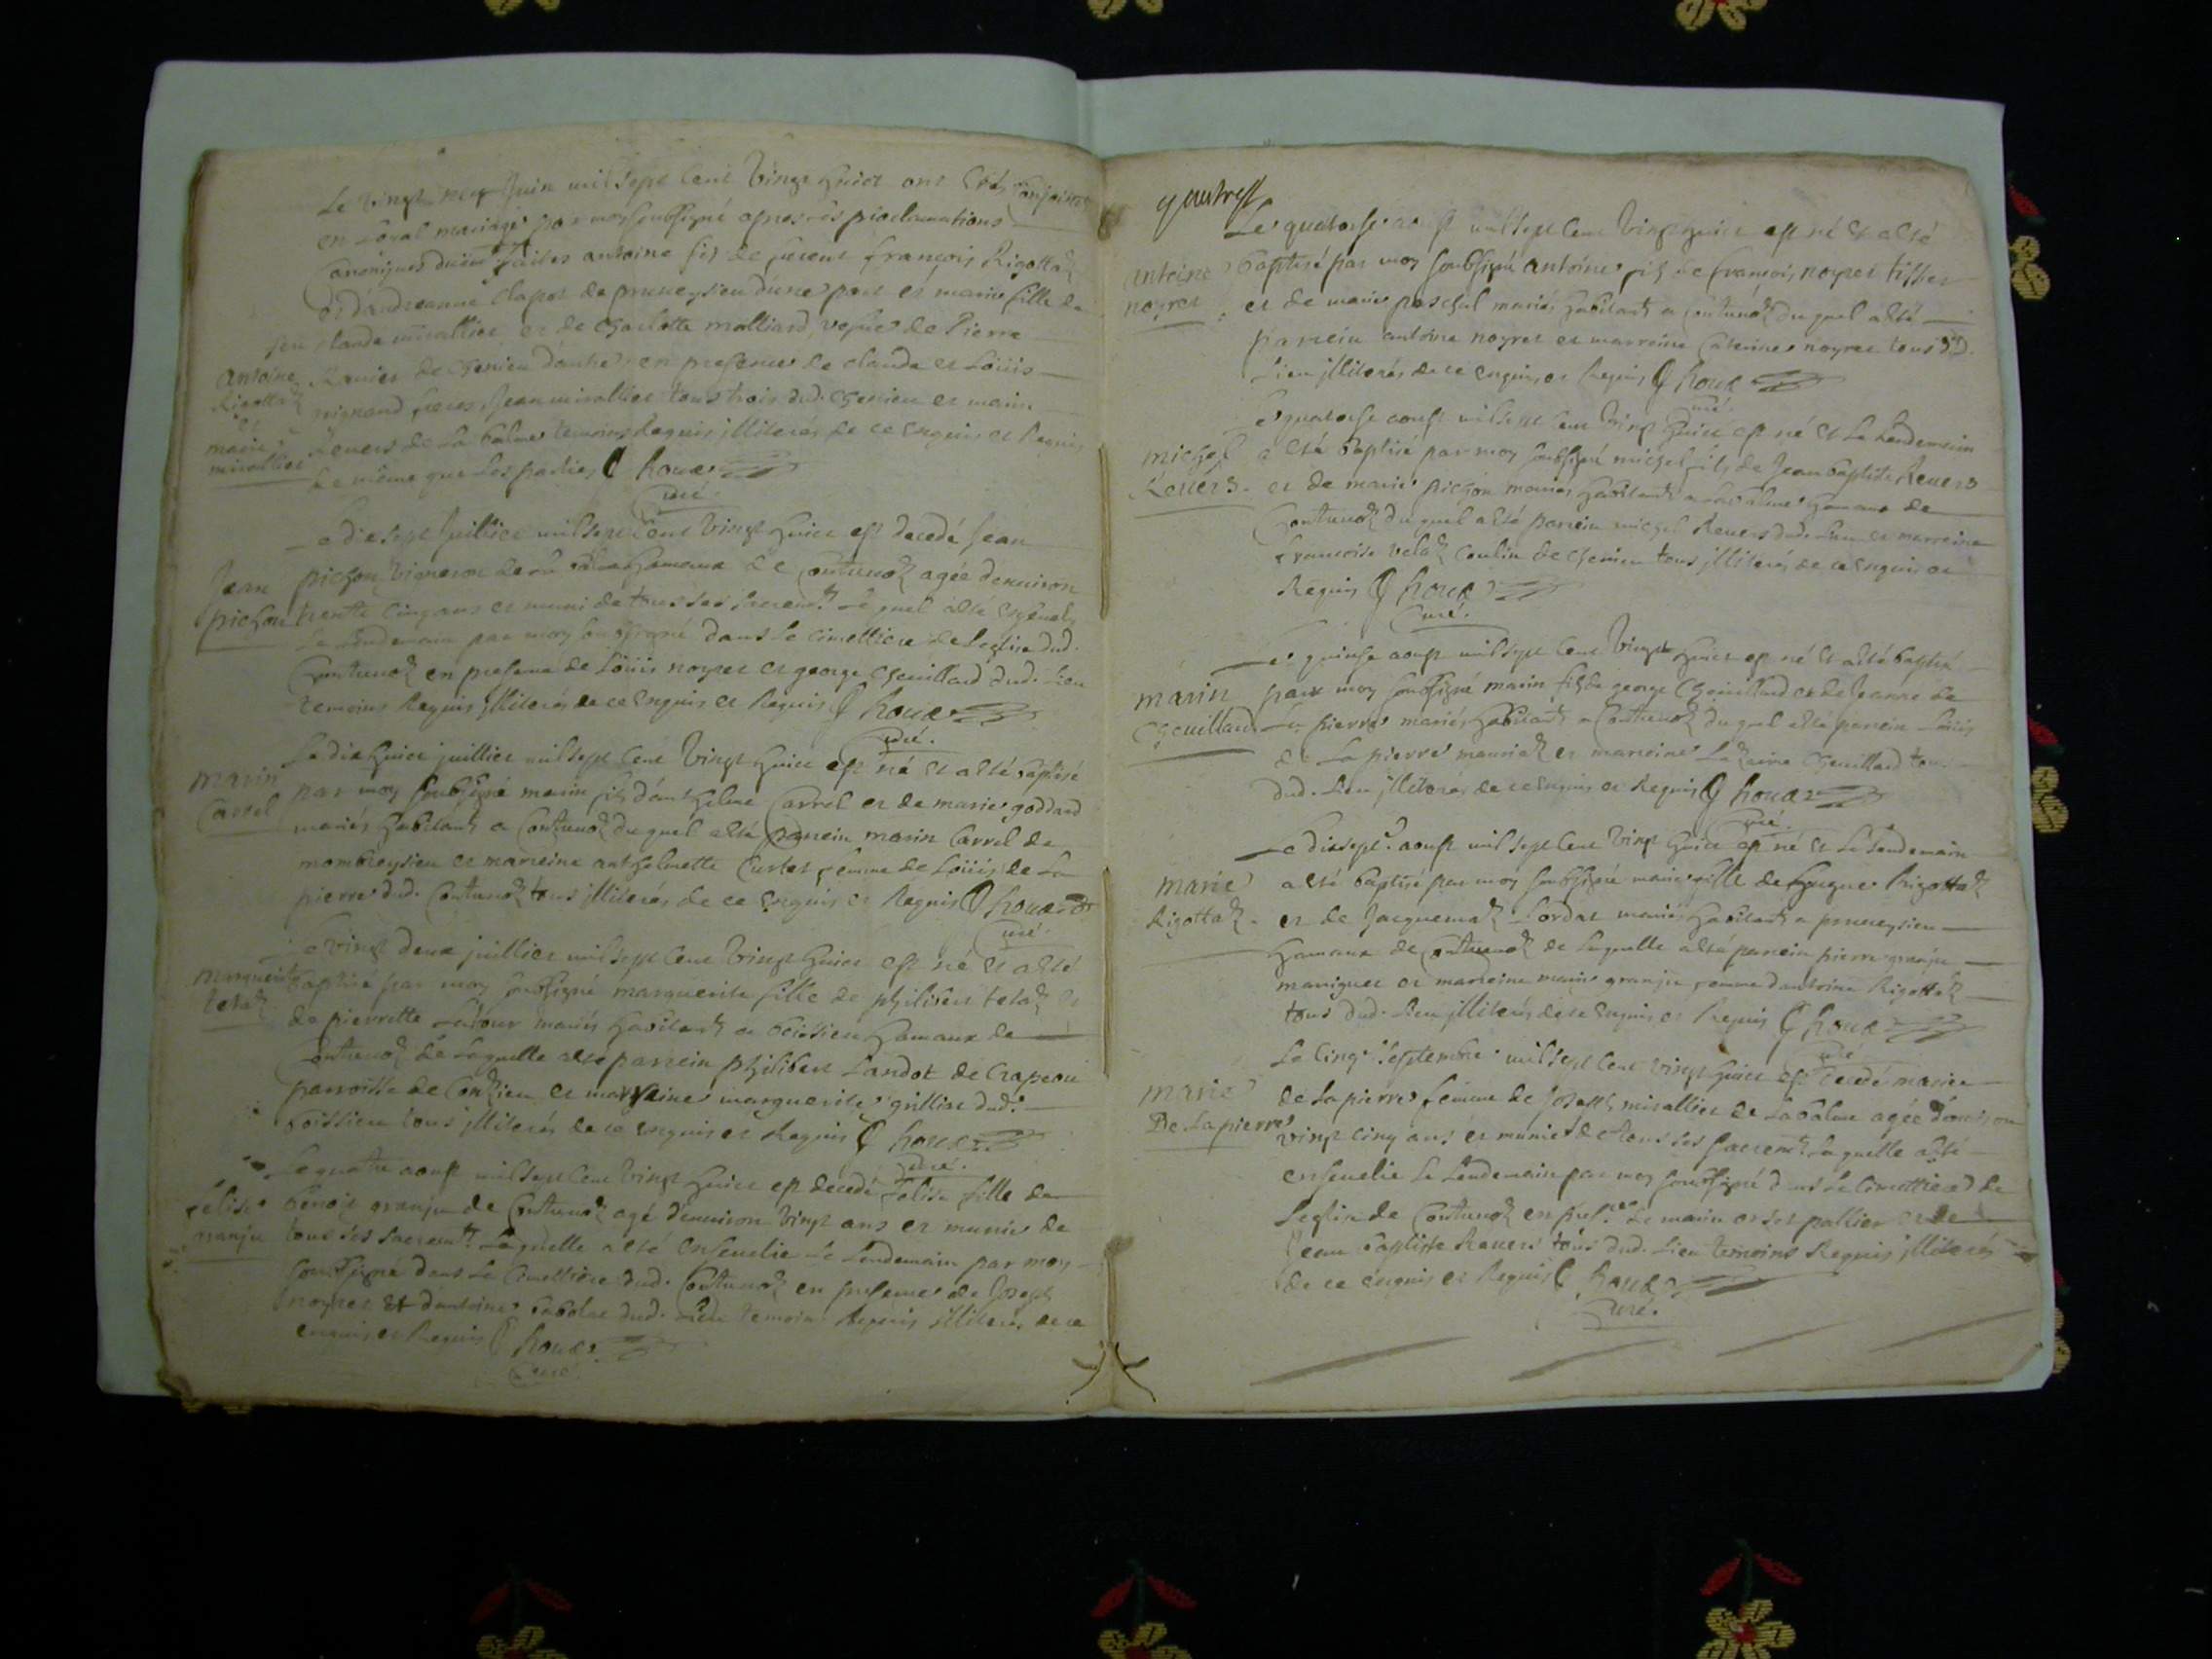 Le vingt neuf Juin mil sept cent vingt huict ont étés conjoints
en Loyal mariage par moy soubsigné apres les proclamations
canoniques düem. faites antoine fils de feu françois Rigottaz
et d'andreanne clapot de pruneysieu d'une part et marie fille de
feu claude mirallier et de charlotte molliard, vefue de Pierre
antoine
Rigottaz
et
marie
mirallier
de chenieu d'autre, en presence de claude et Loüis
mignand freres, Jean mirallier tous trois dud. chenieu et marin
Revers de La balme temoins Requis illiterés de ce enquis et Requis
de même que Les parties houe
curé.
Jean
pichon
Le dix sept Juillier mil sept cent vingt huict est decedé Jean
pichon vigneron de La balme hameau de Conteuoz agée d'enuiron
trente cinq ans et muni de tous ses sacremts Lequel a esté enseuely
Le Lendemain par moy soubsigné dans Le cimettiere de Leglise dud.
Conteuoz en presence de Loüis noyret et george cheuillard dud. Lieu
temoins Requis illiterés de ce enquis et Requis houe
curé.
marin
Carrel
Le dix huict juillier mil sept cent vingt huict est né et a esté baptisé
par moy soubsigné marin fils d'anthelme Carrel et de marie goddard
mariés habitants a Conteuoz duquel a esté parrein marin Carrel de
mombreysieu et marreine anthelmette Curtet femme de Loüis de La
pierre dud. Conteuoz tous illiterés de ce enquis et Requis houe
curé.
marguerite
tetaz
Le vingt deux juillier mil sept cent vingt huict est né et a esté
baptisé par moy soubsigné marguerite fille de philibert tetaz et
de pierrette Latour mariés habitants a boissieu hamaux de
Conteuoz de Laquelle a esté parrein philibert Landot de Crapeou
parroisse de Conzieu et marreine marguerite grillier dud.
boissieu tous illiterés de ce enquis et Requis houe
curé.
felise
granju
Le quatre aoust mil sept cent vingt huict est decedé felise fille de
benoit granju de Conteuoz agé d'enuiron vingt ans et munie de
tous ses sacremts Laquelle a esté enseuelie Le Lendemain par moy
soubsigné dans Le Cimettiere dud. Conteuoz en presence de Joseph
noyret et d'antoine babolat dud. Lieu temoins Requis illiterés de ce
enquis et Requis houe
curé
antoine
noyret
Le quatorse aoust mil sept cent vingt huict est né et a esté
baptisé par moy soubsigné antoine fils de françois noyret tissier
et de marie paschal mariés habitants a Conteuoz duquel a esté
parrein antoine noyret et marreine Caterine noyret tous dud.
Lieu illiterés de ce enquis et Requis houe
curé.
michel
Revers.
Le quatorse aoust mil sept cent vingt huict est né et Le Lendemain
a esté baptisé par moy soubsigné michel fils de Jean baptiste Revers
et de marie pichon mariés habitants a La balme hamaux de
Conteuoz duquel a esté parrein michel Revers dud. Lieu et marreine
francoise velaz coulin de chenieu tous illiterés de ce enquis et
Requis houe
curé.
marin
cheuillard
Le quinse aoust mil sept cent vingt huict est né et a esté baptisé
par moy soubsigné marin fils de george cheuillard et de Jeanne de
La pierre mariés habitants a Conteuoz duquel a esté parrein Loüis
de La pierre et marreine cheuillard tous
dud. Lieu illiterés de ce enquis et Requis houe
curé.
marie
Rigottaz.
Le dixsept. aoust mil sept cent vingt huict est né et Le Lendemain
a esté baptisé par moy soubsigné marie fille de hugue Rigottaz
et de Jacquemaz Lordat mariés habitants a pruneysieu
hamaux de Conteuoz de Laquelle a esté parrein pierre granju
maniguet et marreine marie granju femme d'antoine Rigottaz
tous dud. Lieu illiterés de ce enquis et Requis houe
curé
marie
De La pierre
Le cinq septembre mil sept cent vingt huict est decedé marie
de La pierre femme de Joseph mirallier de La balme agée d'enuiron
vingt cinq ans et munie de tous ses sacremts Laquelle a esté
enseuelie Le Lendemain par moy soubsigné dans Le cimettiere de
Leglise de Conteuoz en pres.ce de marin pallier et de
Jean baptiste Revers tous dud. Lieu temoins Requis illiterés
de ce enquis et Requis houe
curé.